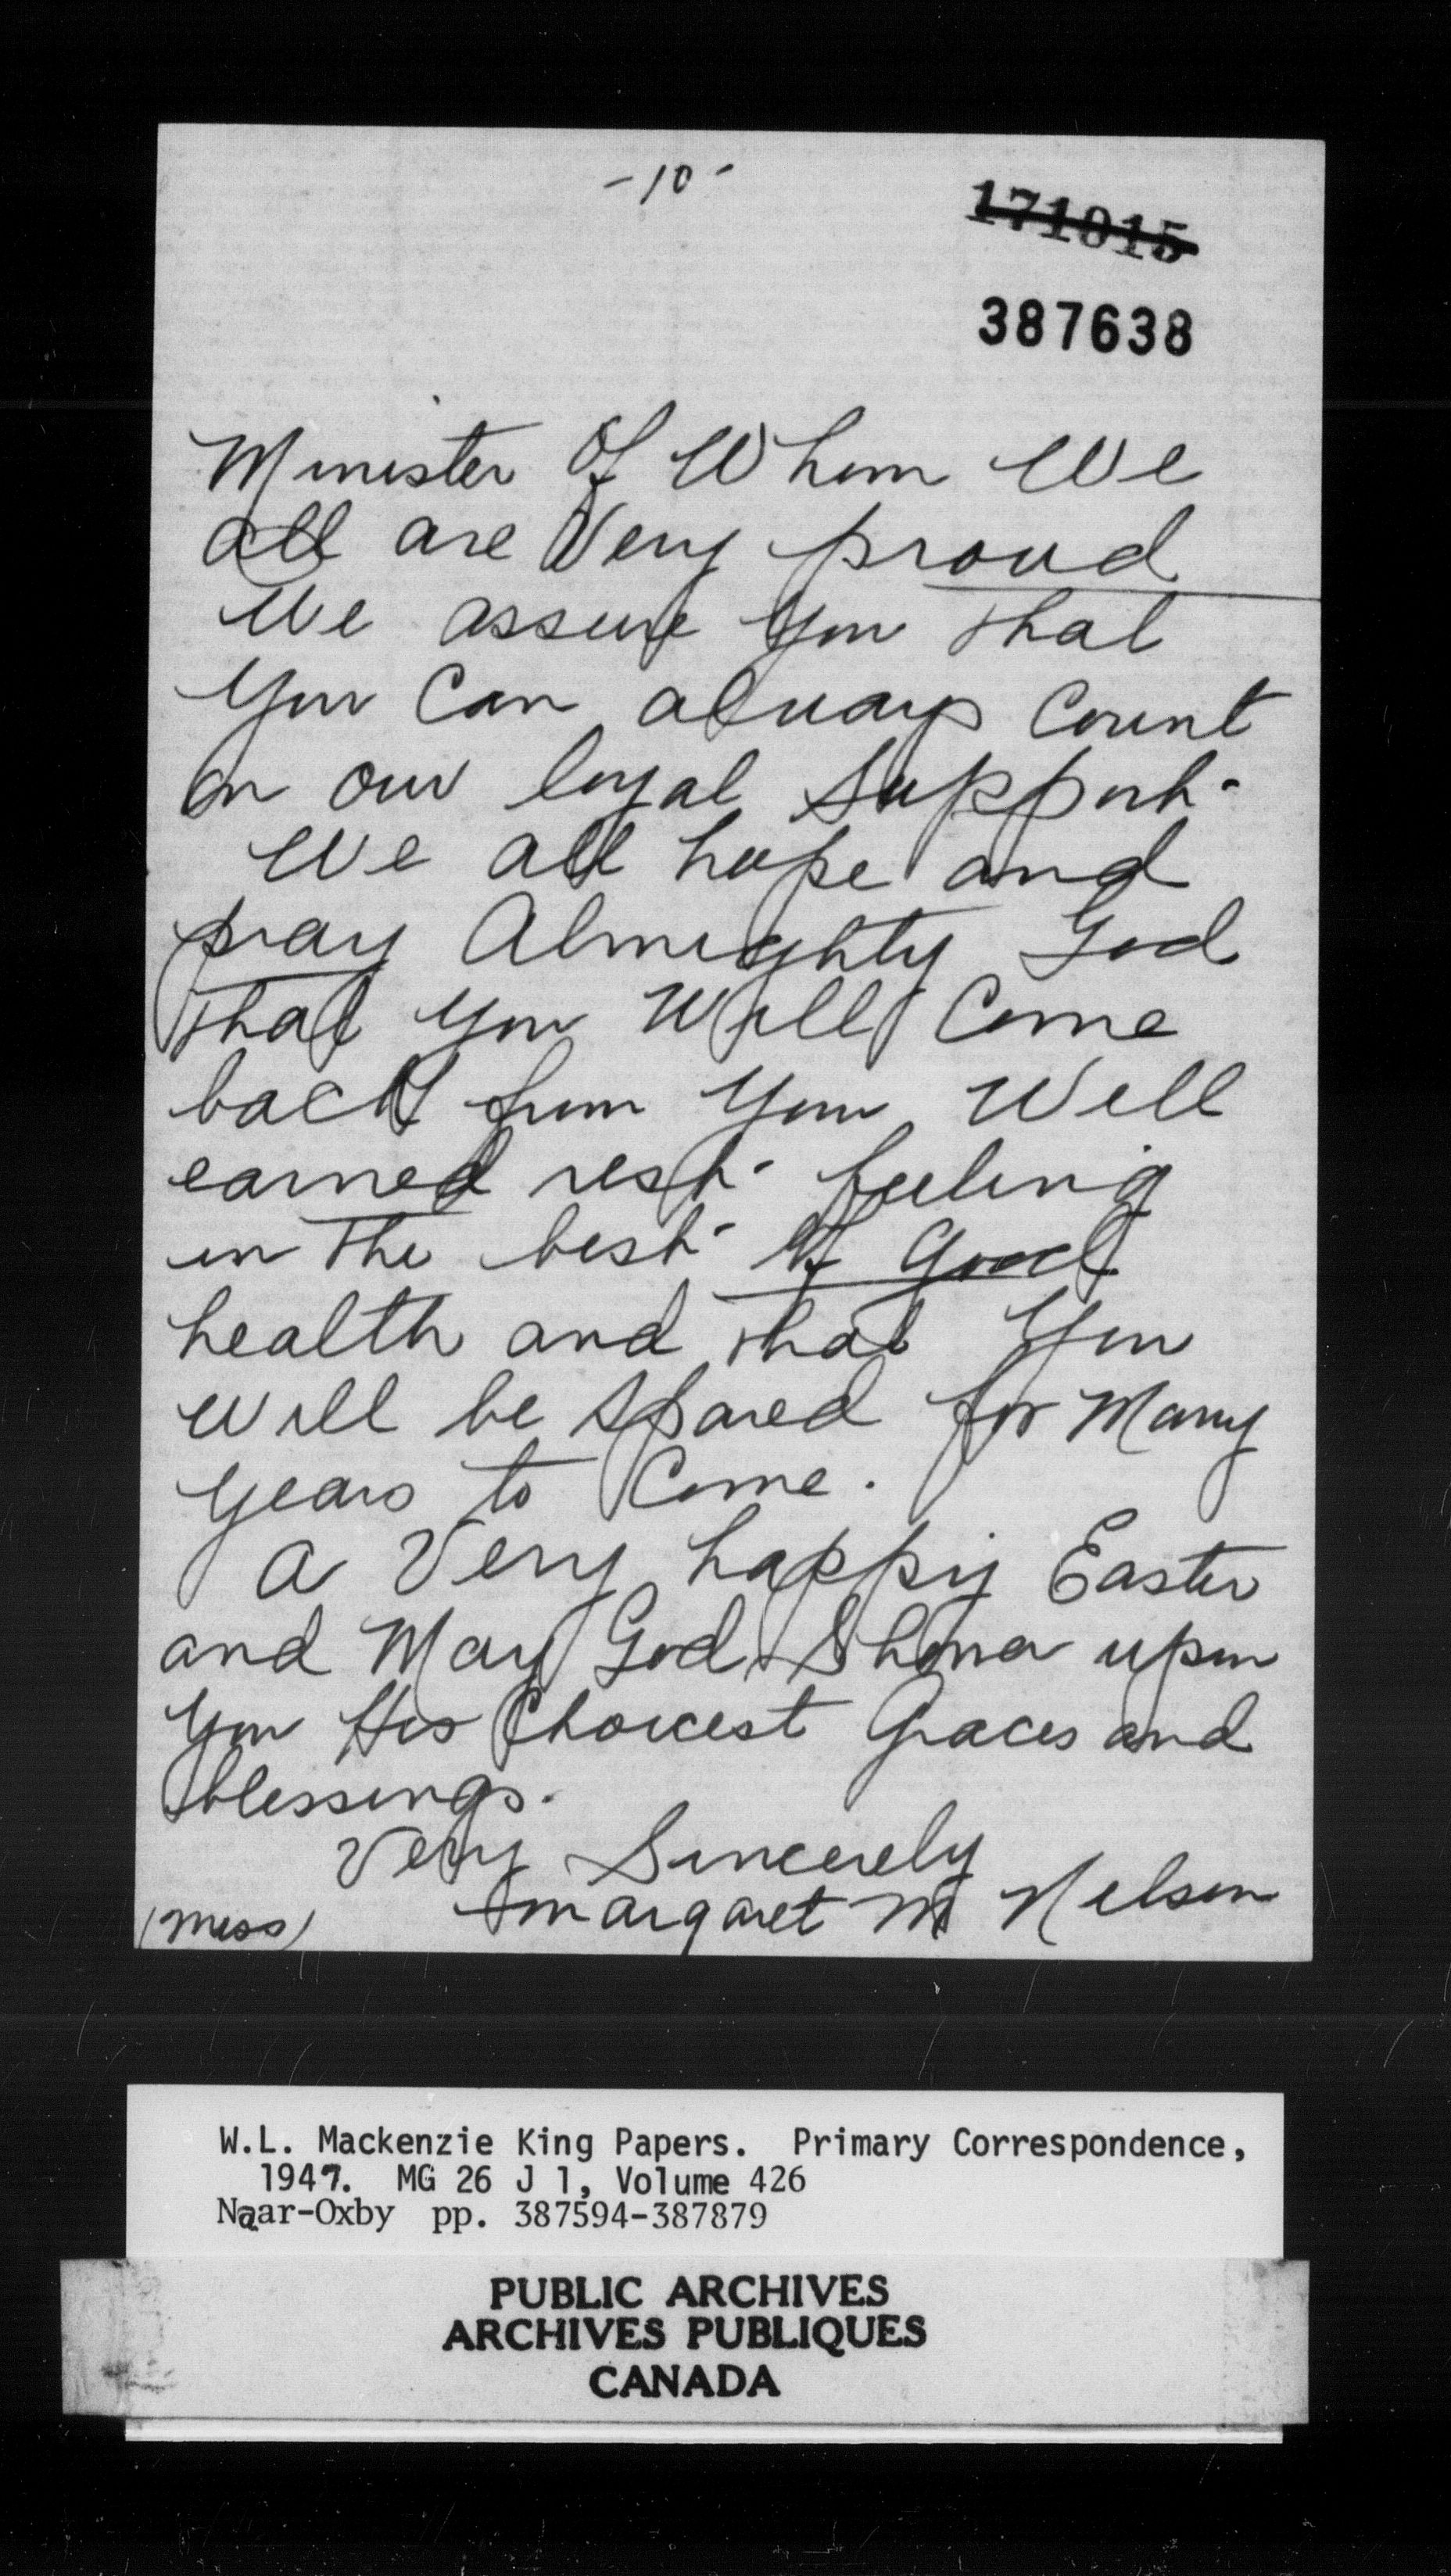 -10-
171015
387638
Minister Of Whom We
all are Very proud
We assure you that
you Can always Count
on our loyal Support-
We all hope and
pray Almighty God
that you Will Come
back from your Well
earned rest- feeling
in the best- of good
health and that you
will be spared for Many
years to Come.
A Very happy Easter
and May God Shower upon
you His Choicest Graces and
blessings.
Very Sincerely
(Miss) Margaret M Nelson
W.L. Mackenzie King Papers. Primary Correspondence,
1947. MG 26 J 1, Volume 426
Naar-Oxby pp. 387594-387879
PUBLIC ARCHIVES
ARCHIVES PUBLIQUES
CANADA